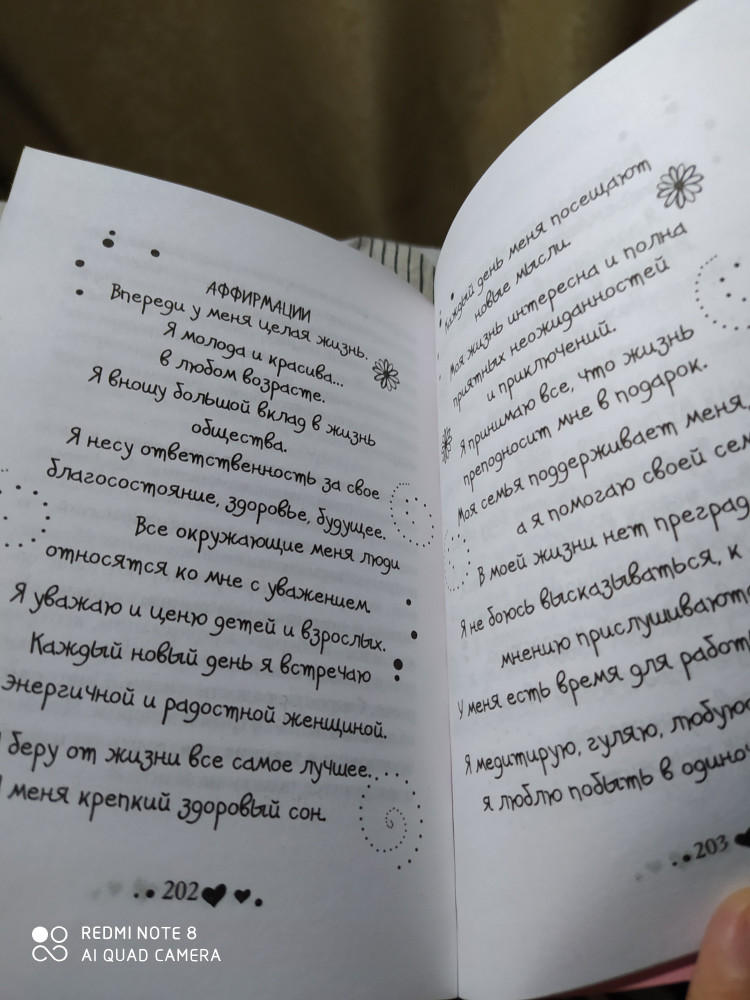 АФФИРМАЦИИ
Впереди у меня целая жизнь.
Я молода и красива...
в любом возрасте.
Я вношу большой вклад в жизнь
общества.
Я несу ответственность за свое
благосостояние, здоровье, будущее.
Все окружающие меня люди
относятся ко мне с уважением.
Я уважаю и ценю детей и взрослых.
Каждый новый день я встречаю
энергичной и радостной женщиной.
беру от жизни все самое лучшее.
меня крепкий здоровый сон.
202
Каждый день меня посещают
новые мысли.
Моя жизнь интересна и полна
приятных неожиданностей
и приключений.
Я принимаю все, что жизнь
преподносит мне в подарок.
Моя семья поддерживает меня,
а я помогаю своей
В моей жизни нет
Я не боюсь высказываться, к
мнению
У меня есть время для
Я медитирую, гуляю,
я люблю побыть в
203
REDMI NOTE 8
AI QUAD CAMERA